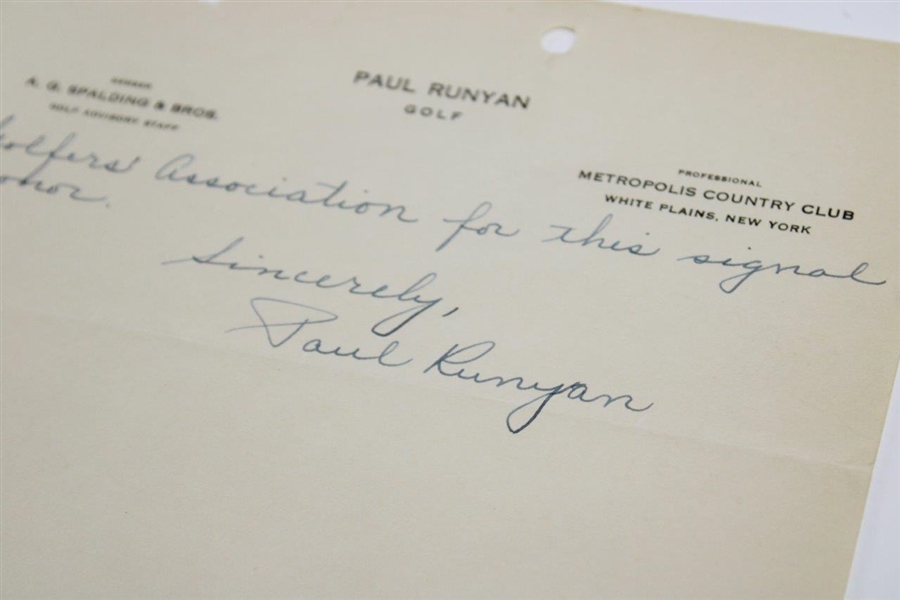 MEMBER
A. G. SPALDING & BROS.
GOLF ADVISORY STAFF
PAUL RUNYAN
GOLF
PROFESSIONAL
METROPOLIS COUNTRY CLUB
WHITE PLAINS, NEW YORK
Golfers' Association for this signal
onor.
Sincerely,
Paul Runyan